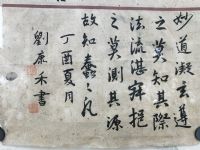 妙道凝玄遵
之莫知其際
法流湛寂挹
之莫測其源
故知蠢々凡
丁酉夏月
劉康禾書